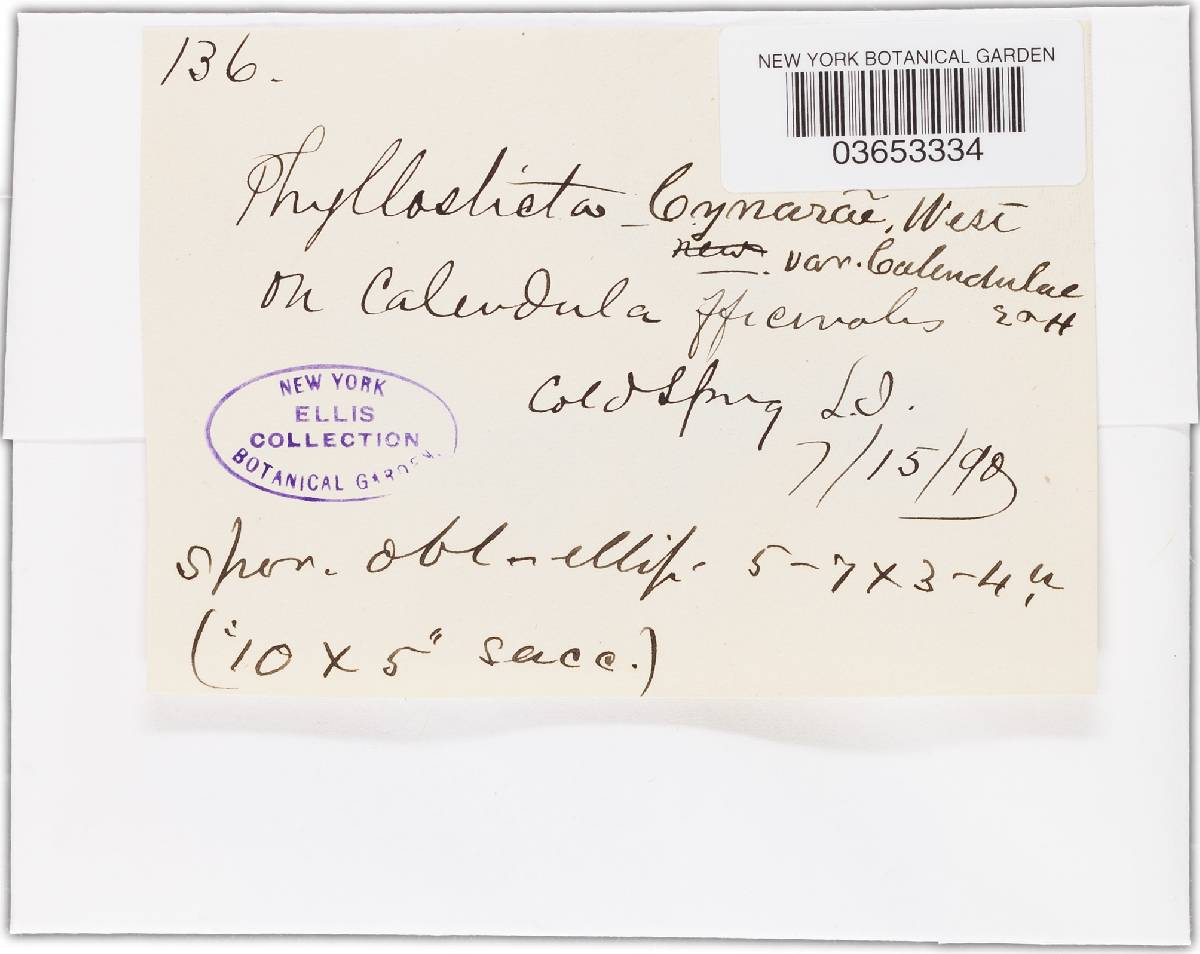 136.
NEW YORK BOTANICAL GARDEN
03653334
Phyllosticta Cynarae, West
new. var. Calendulae
E & H
on Calendula officinalis
Cold Spring L.I.
7/15/90
NEW YORK
ELLIS
COLLECTION
BOTANICAL GARDEN.
spor. obl-ellip. 5-7 x 3-4 µ
("10 x 5" sacc.)